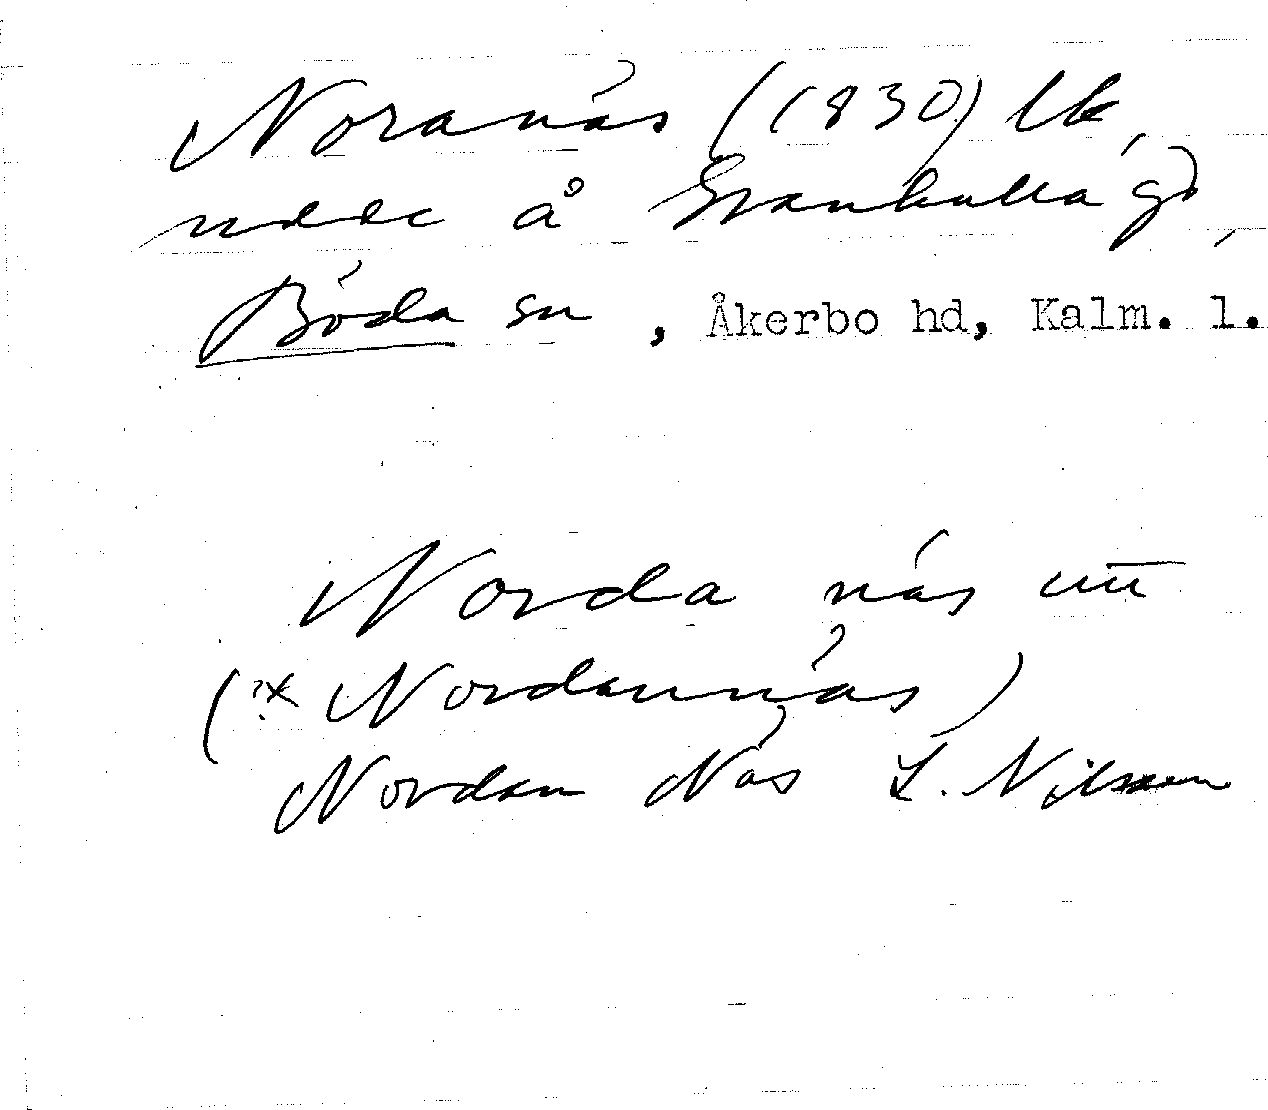 Noranäs (1830) lk,
nese å Grankulla gd,
Böda sn, Åkerbo hd, Kalm. l.
Norda näs
(?* Nordannäs)
Nordan Näs L. Nilsson